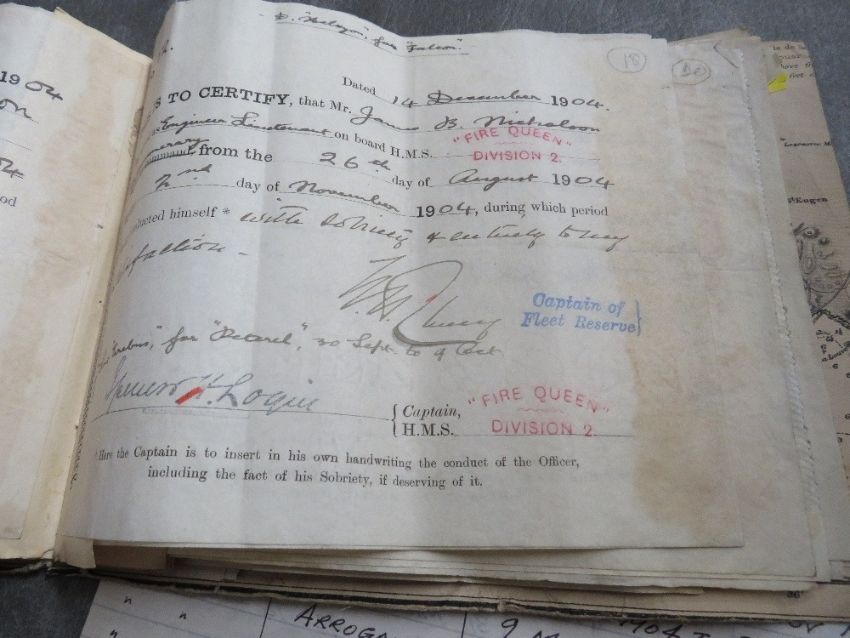 "Halcyon", for "Falcon".
18
Dated 14 December 1904.
IS TO CERTIFY, that Mr. James B. Nicholson
Engineer Lieutenant on board H.M.S. "FIRE QUEEN" DIVISION 2.
command from the 26th day of August 1904
2nd day of November 1904, during which period
ducted himself * with sobriety & entirely to my
faction -
Captain of
Fleet Reserve
"Erebus," for "Petarel", 30 Sept. to 9 Oct
Spencer H. Login
Captain,
H.M.S. "FIRE QUEEN" DIVISION 2.
Here the Captain is to insert in his own handwriting the conduct of the Officer,
including the fact of his Sobriety, if deserving of it.
1904
04
od
ARROGA
9
1904